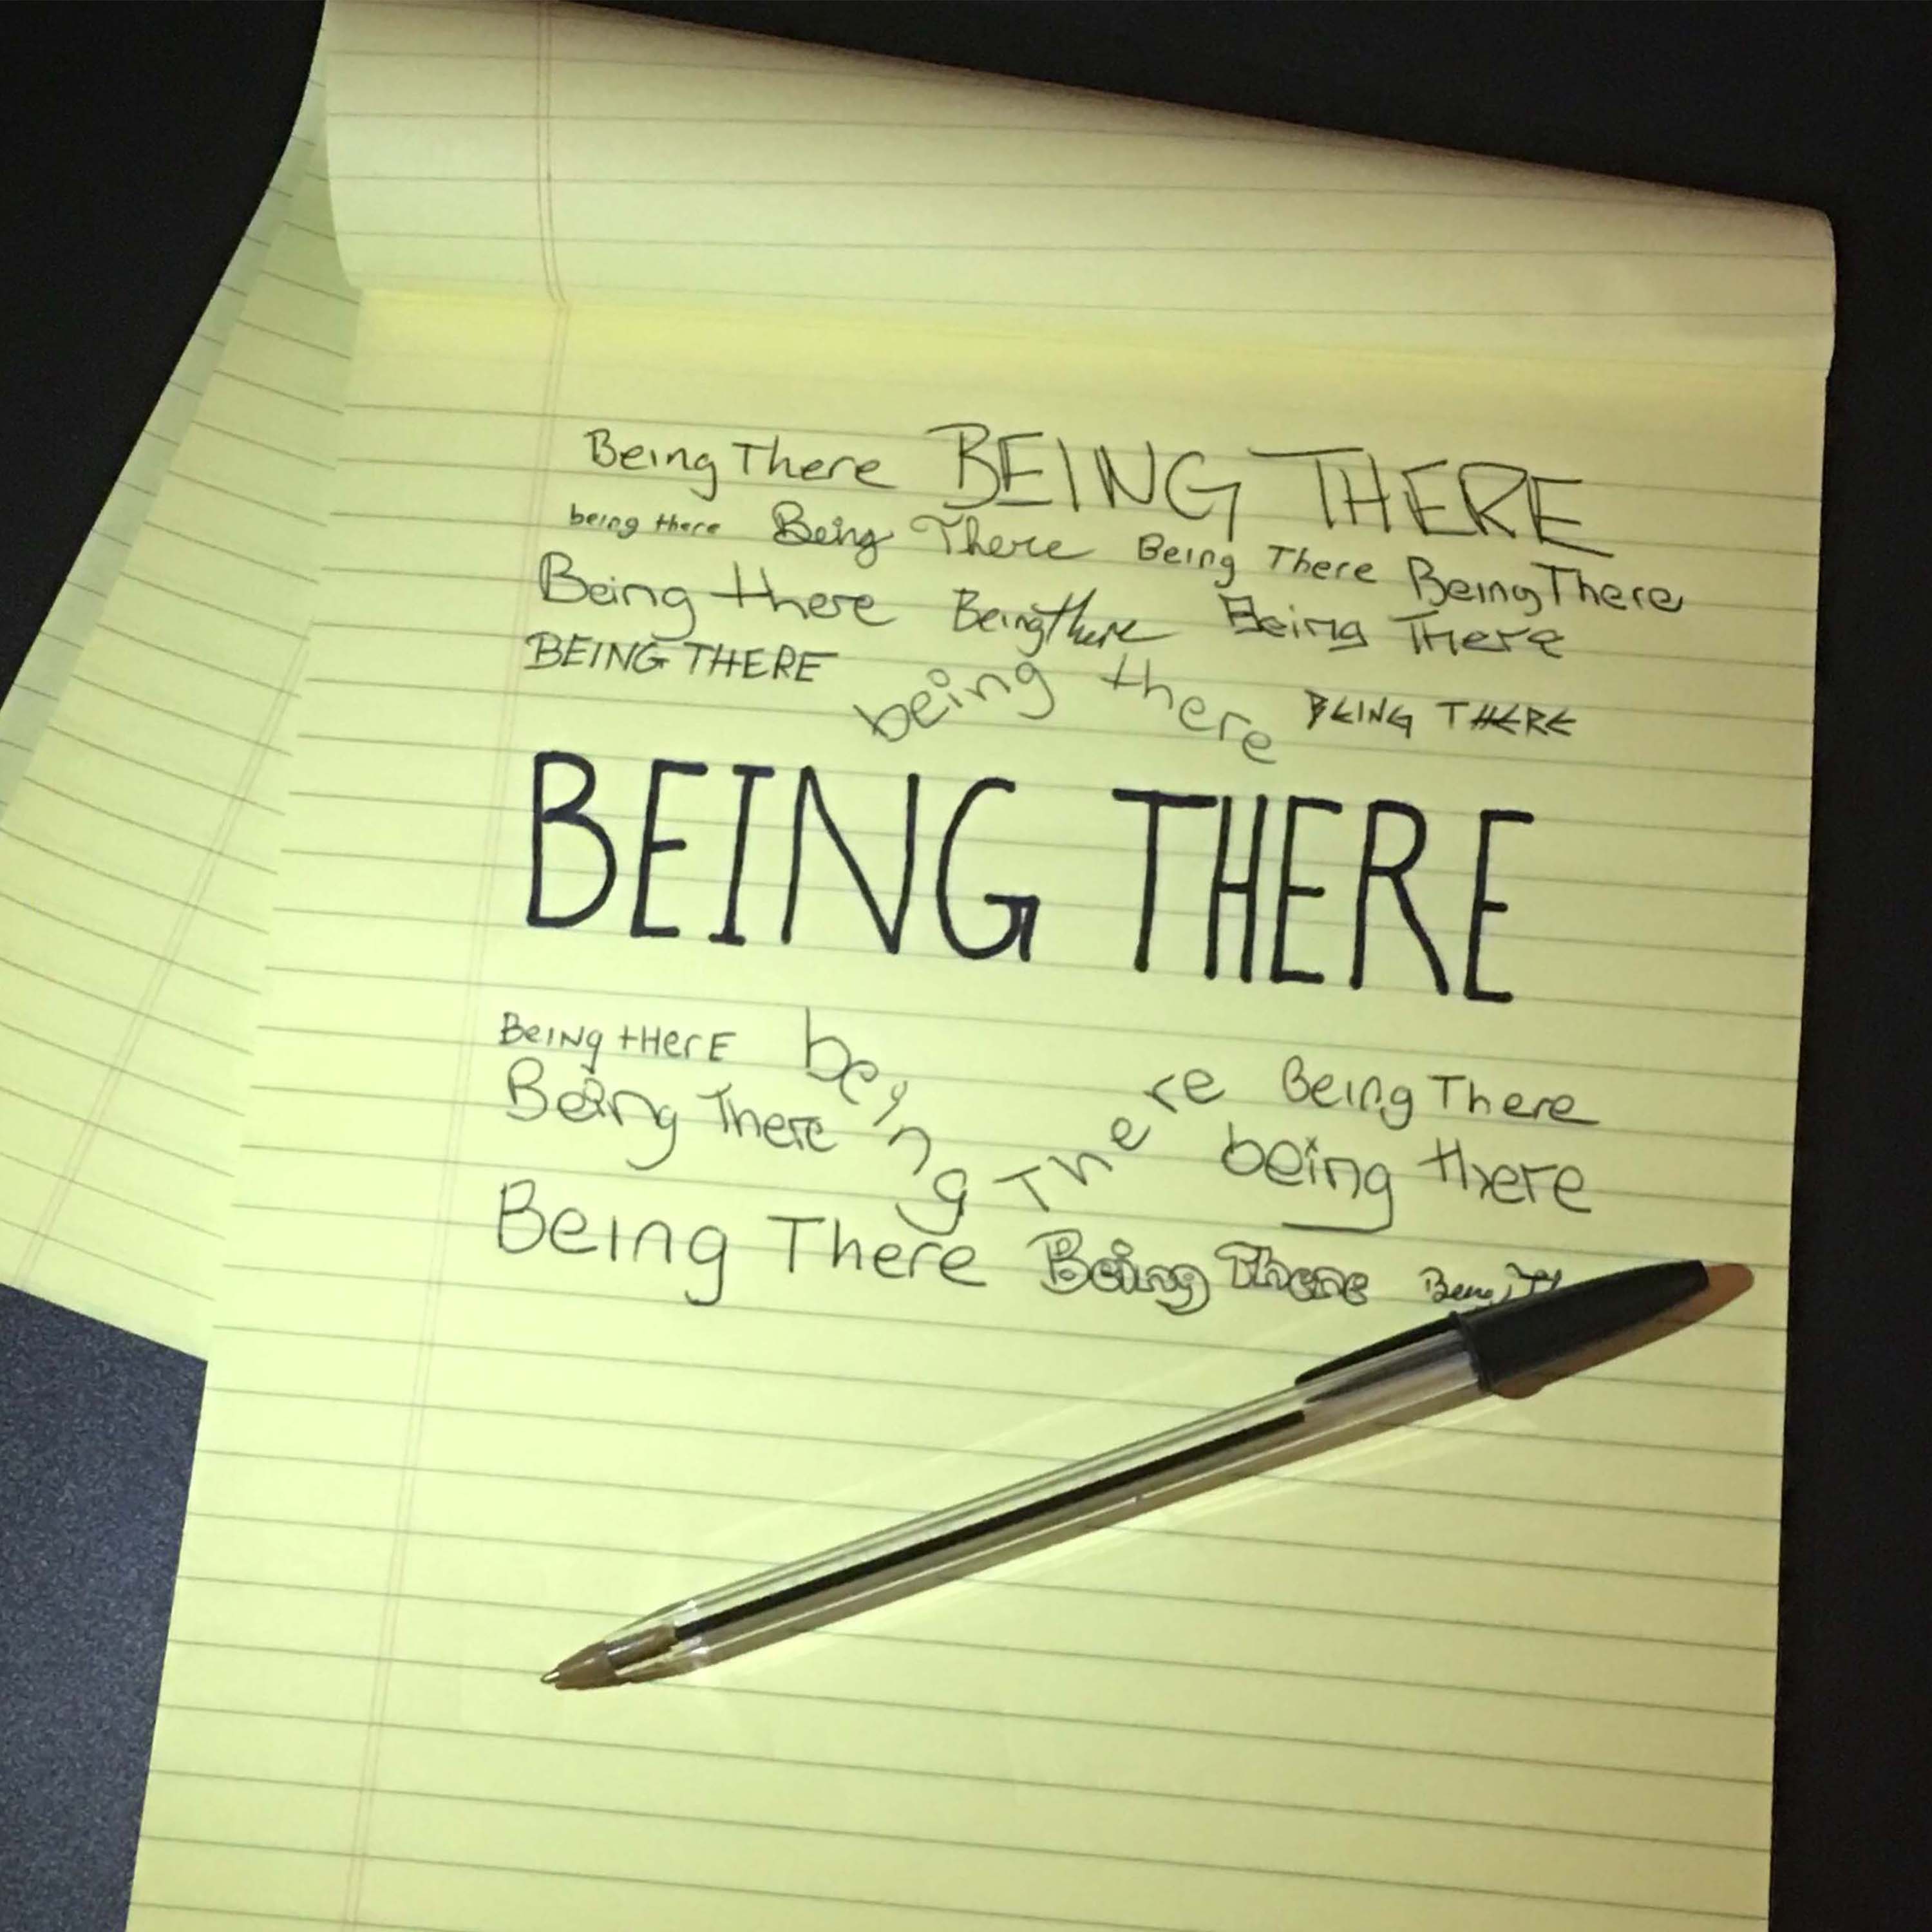 Being There BEING THERE
being there Being There Being There Being There
Being there Being there Being There
BEING THERE being there BEING THERE
BEING THERE
BeINg tHerE being There Being There
Being There being there
Being There Being There